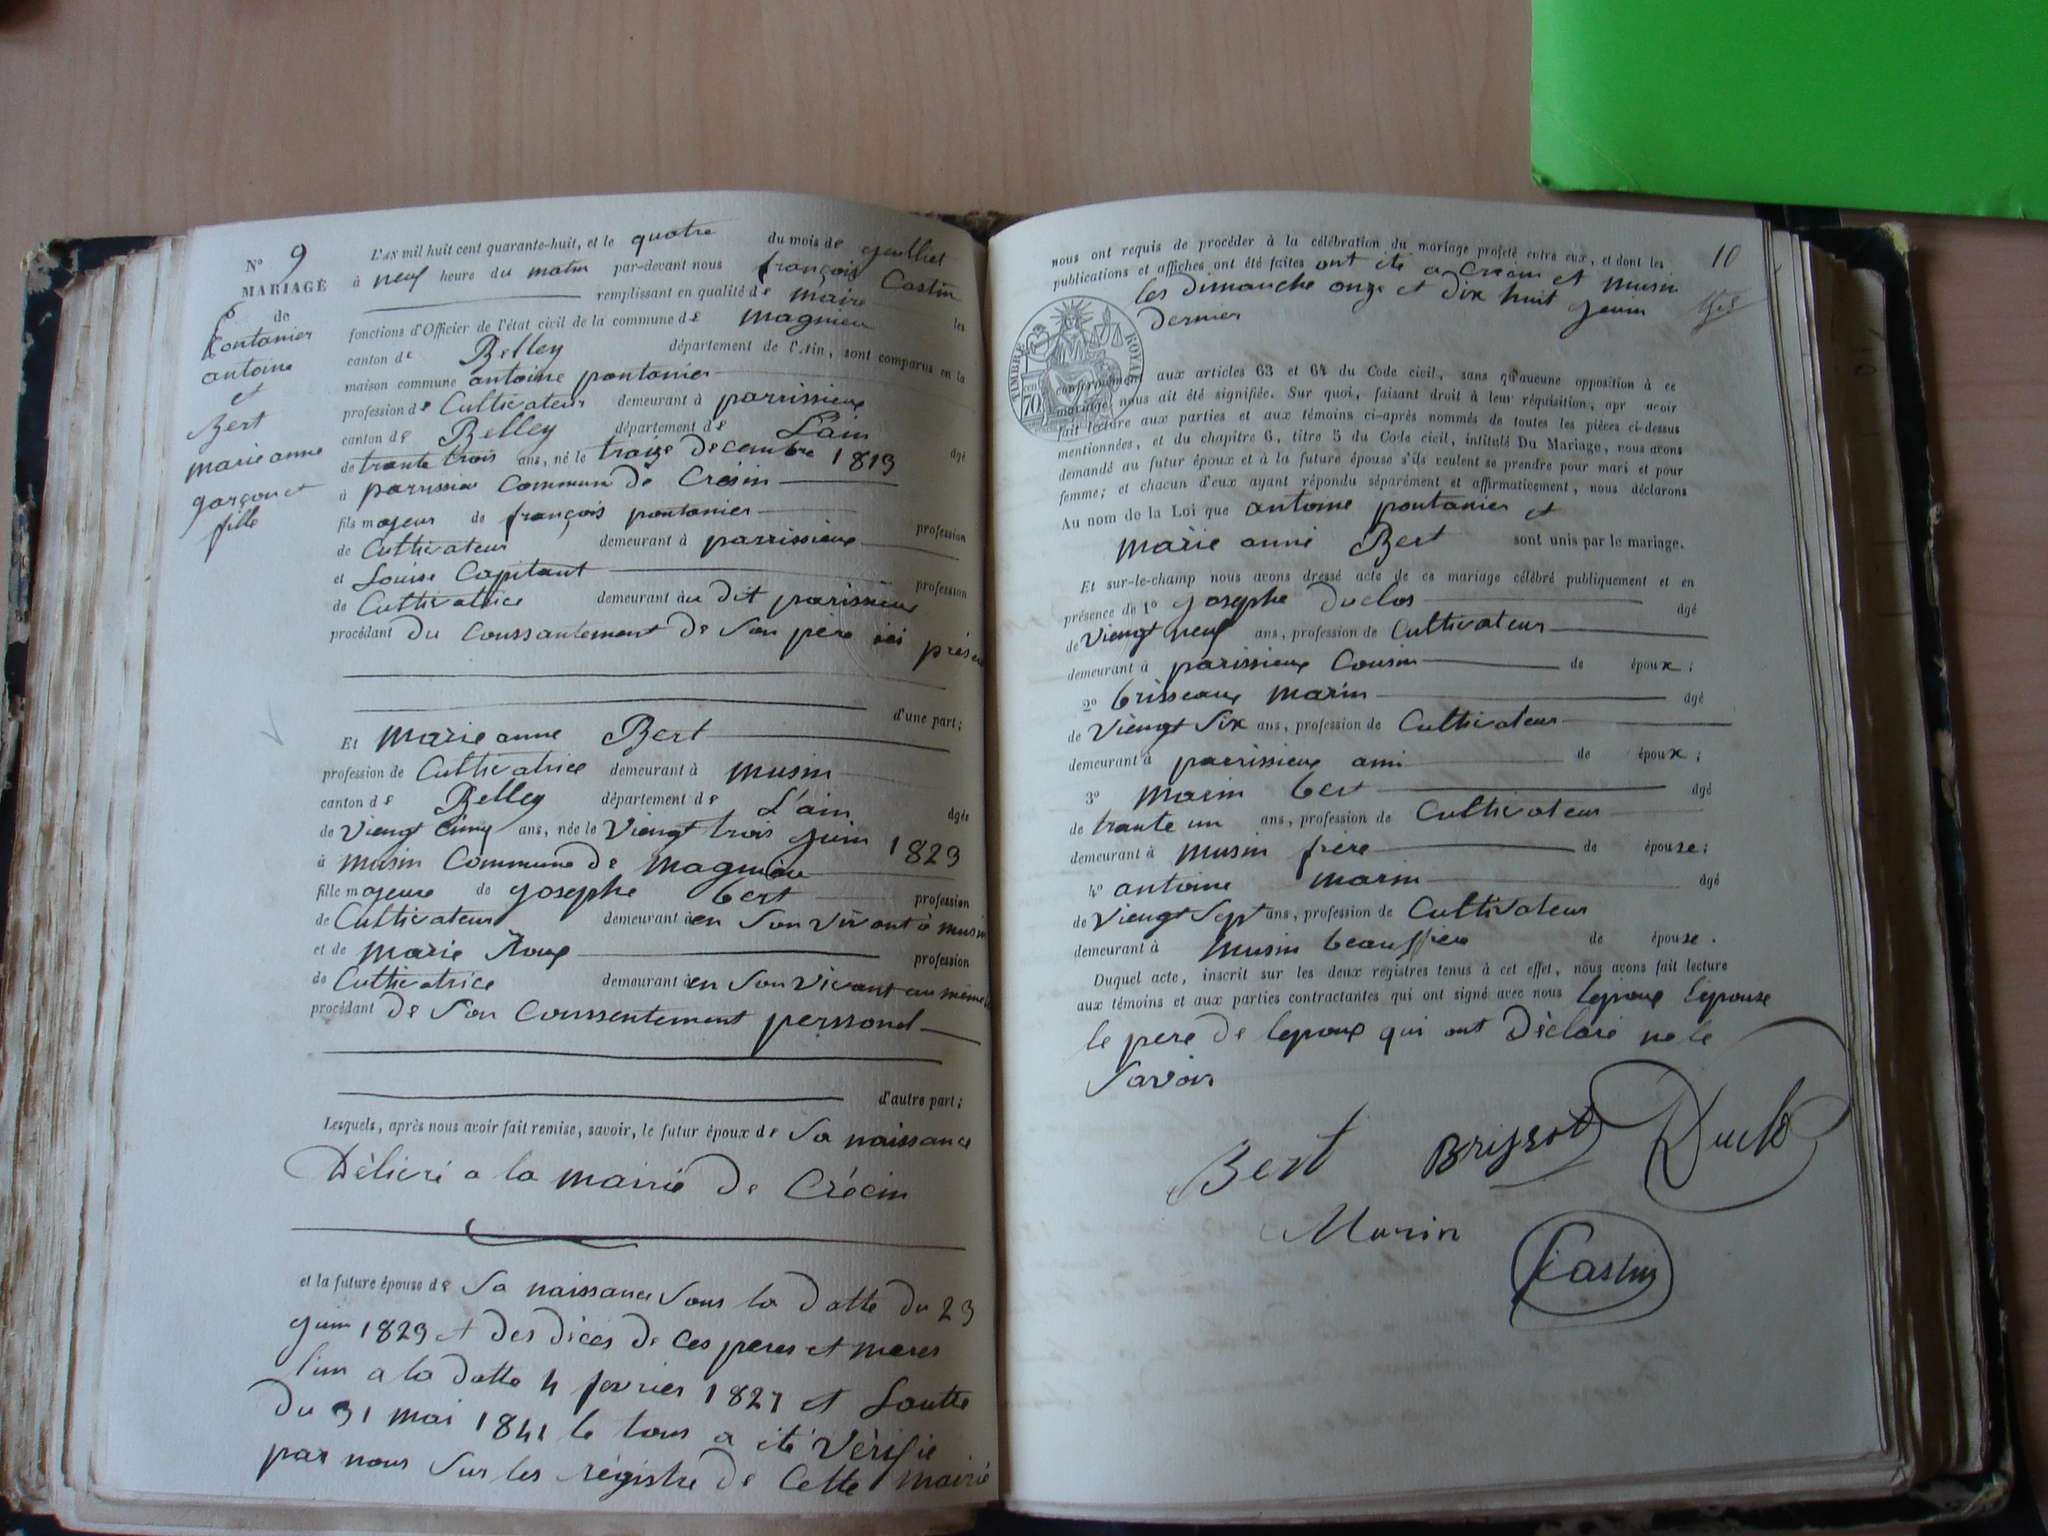 N° 9
MARIAGE
de
pontanier
antoine
et
Bert
marie anne
garçon et
fille
L'AN mil huit cent quarante-huit, et le quatre du mois de juilliet
à neuf heure du matin par-devant nous françois Castin
remplissant en qualité de maire les
fonctions d'Officier de l'état civil de la commune de magnieu
canton de Belley département de l'Ain, sont comparus en la
maison commune antoine pontanier
profession de Cultivateur demeurant à parrissieux
canton de Belley département de L'ain âgé
de trante trois ans, né le traize decembre 1813
à parrissieu Commune de Crésin
fils majeur de françois pontanier profession
de Cultivateur demeurant à parrissieux
et Louise Capitant profession
de Cultivatrice demeurant au dit parissieux
procédant du Conssantement de Son père ici présen
d'une part;
Et Marie anne Bert
profession de Cultivatrice demeurant à musin
canton de Belley département de L'ain âgée
de Viengt cinq ans, née le Viengt trois juin 1823
à musin Commune de Magnieu
fille majeure de josephe bert profession
de Cultivateur demeurant à en Son vivant à musin
et de Marie Roux profession
de Cultivatrice demeurant à en Son Vivant au même
procédant de Son Conssentement perssonel
d'autre part;
Lesquels, après nous avoir fait remise, savoir, le futur époux de Sa naissance
Délivré a la mairie de Crécin
et la future épouse de Sa naissance Sous la datte du 23
juin 1823 et des dicès de ces peres et meres
l'un a la datte 4 fevrier 1827 et Lautre
du 31 mai 1841 le tous a été Vérifié
par nous Sur les régistre de Cette Mairie
10
nous ont requis de procéder à la célébration du mariage projeté entre eux, et dont les
publications et affiches ont été faites ont été a Crésin et musin
les dimanche onze et dix huit juin
dernier
TIMBRE ROYAL
70 cent
conformément aux articles 63 et 64 du Code civil, sans qu'aucune opposition à ce
mariage nous ait été signifiée. Sur quoi, faisant droit à leur réquisition, apr avoir
fait lecture aux parties et aux témoins ci-après nommés de toutes les pièces ci-dessus
mentionnées, et du chapitre 6, titre 5 du Code civil, intitulé Du Mariage, nous avons
demandé au futur époux et à la future épouse s'ils veulent se prendre pour mari et pour
femme; et chacun d'eux ayant répondu séparément et affirmativement, nous déclarons
Au nom de la Loi que antoine pontanier et
Marie anne Bert sont unis par le mariage.
Et sur-le-champ nous avons dressé acte de ce mariage célébré publiquement et en
présence de 1° josephe Duclos âgé
de Viengt neuf ans, profession de Cultivateur
demeurant à parissieux Cousin de époux;
2° brisseaux marin âgé
de Viengt Six ans, profession de Cultivateur
demeurant à parrissieux ami de époux;
3° Marin bert âgé
de trante un ans, profession de Cultivateur
demeurant à musin frère de épouse;
4° antoine marin âgé
de Viengt Sept ans, profession de Cultivateur
demeurant à musin beauffrere de épouse.
Duquel acte, inscrit sur les deux registres tenus à cet effet, nous avons fait lecture
aux témoins et aux parties contractantes qui ont signé avec nous lepoux lepouse
le pere de lepoux qui ont Déclaré ne le
Savoir
Bert Brissot Duclo
Marin
Castin